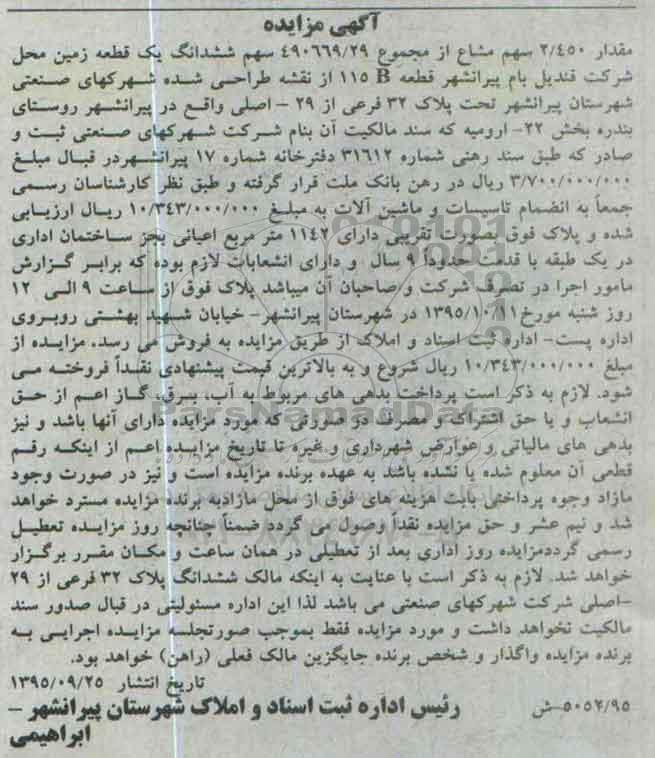 آگهی مزایده
مقدار ۲/۴۵۰ سهم مشاع از مجموع ۴۹۰۶۶۹/۲۹ سهم ششدانگ یک قطعه زمین محل
شرکت قندیل بام پیرانشهر قطعه B ۱۱۵ از نقشه طراحی شده شهرکهای صنعتی
شهرستان پیرانشهر تحت پلاک ۳۲ فرعی از ۲۹ – اصلی واقع در پیرانشهر روستای
بندره بخش ۲۲- ارومیه که سند مالکیت آن بنام شرکت شهرکهای صنعتی ثبت و
صادر که طبق سند رهنی شماره ۳۱۶۱۲ دفترخانه شماره ۱۷ پیرانشهردر قبال مبلغ
۳/۷۰۰/۰۰۰/۰۰۰ ریال در رهن بانک ملت قرار گرفته و طبق نظر کارشناسان رسمی
جمعاً به انضمام تاسیسات و ماشین آلات به مبلغ ۱۰/۳۴۳/۰۰۰/۰۰۰ ریال ارزیابی
شده و پلاک فوق بصورت تقریبی دارای ۱۱۴۲ متر مربع اعیانی بجز ساختمان اداری
در یک طبقه با قدمت حدوداً ۹ سال و دارای انشعابات لازم بوده که برابر گزارش
مامور اجرا در تصرف شرکت و صاحبان آن میباشد پلاک فوق از ساعت ۹ الی ۱۲
روز شنبه مورخ ۱۳۹۵/۱۰/۱۱ در شهرستان پیرانشهر- خیابان شهید بهشتی روبروی
اداره پست- اداره ثبت اسناد و املاک از طریق مزایده به فروش می رسد. مزایده از
مبلغ ۱۰/۳۴۳/۰۰۰/۰۰۰ ریال شروع و به بالاترین قیمت پیشنهادی نقداً فروخته می
شود. لازم به ذکر است پرداخت بدهی های مربوط به آب، برق، گاز اعم از حق
انشعاب و یا حق اشتراک و مصرف در صورتی که مورد مزایده دارای آنها باشد و نیز
بدهی های مالیاتی و عوارض شهرداری و غیره تا تاریخ مزایده اعم از اینکه رقم
قطعی آن معلوم شده یا نشده باشد به عهده برنده مزایده است و نیز در صورت وجود
مازاد وجوه پرداختی بابت هزینه های فوق از محل مازادبه برنده مزایده مسترد خواهد
شد و نیم عشر و حق مزایده نقداً وصول می گردد ضمناً چنانچه روز مزایده تعطیل
رسمی گرددمزایده روز اداری بعد از تعطیلی در همان ساعت و مکان مقرر برگزار
خواهد شد. لازم به ذکر است با عنایت به اینکه مالک ششدانگ پلاک ۳۲ فرعی از ۲۹
-اصلی شرکت شهرکهای صنعتی می باشد لذا این اداره مسئولیتی در قبال صدور سند
مالکیت نخواهد داشت و مورد مزایده فقط بموجب صورتجلسه مزایده اجرایی به
برنده مزایده واگذار و شخص برنده جایگزین مالک فعلی (راهن) خواهد بود.
تاریخ انتشار ۱۳۹۵/۰۹/۲۵
۵۰۵۲/۹۵-ش رئیس اداره ثبت اسناد و املاک شهرستان پیرانشهر –
ابراهیمی
ParsNamadData